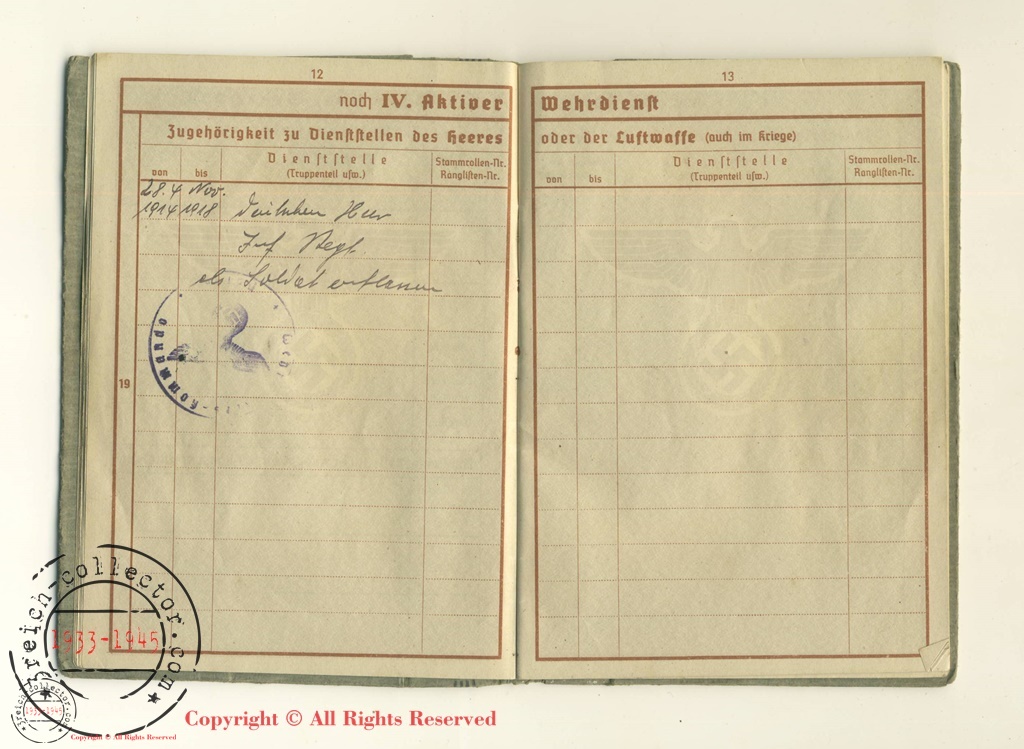 12
noch IV. Aktiver
Zugehörigkeit zu Dienststellen des Heeres
von
bis
Dienststelle
(Truppenteil usw.)
Stammrollen-Nr.
Ranglisten-Nr.
28.4 Nov.
1914 1918 Deutschen Heer
Inf Regt.
als Soldat entlassen
19
kommando
13
Wehrdienst
oder der Luftwaffe (auch im Kriege)
von
bis
Dienststelle
(Truppenteil usw.)
Stammrollen-Nr.
Ranglisten-Nr.
3reich-collector.com
1933-1945
3reich-collector.com
1933-1945
Copyright © All Rights Reserved
Copyright © All Rights Reserved